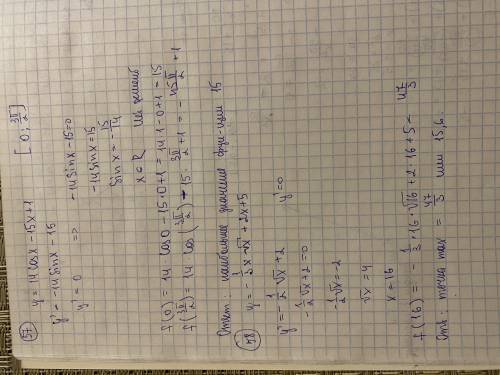 37) y = 14 cosx - 15x + 1 [0; 3π/2]
y' = -14 sinx - 15
y' = 0 => -14 sinx - 15 = 0
-14 sinx = 15
sinx = -15/14
x ∈ R
f(0) = 14 cos0 - 15·0 + 1 = 14·1 - 0 + 1 = 15
f(3π/2) = 14 cos(3π/2) - 15· 3π/2 + 1 = - 45π/2 + 1
Ответ: наибольшее значение функции 15
38) y = -1/3 x√x + 2x + 5
y' = -1/2 √x + 2 y' = 0
-1/2 √x + 2 = 0
-1/2 √x = -2
√x = 4
x = 16
f(16) = -1/3 · 16 · √16 + 2·16 + 5 = 47/3
Отв: точка max = 47/3 или 15,6